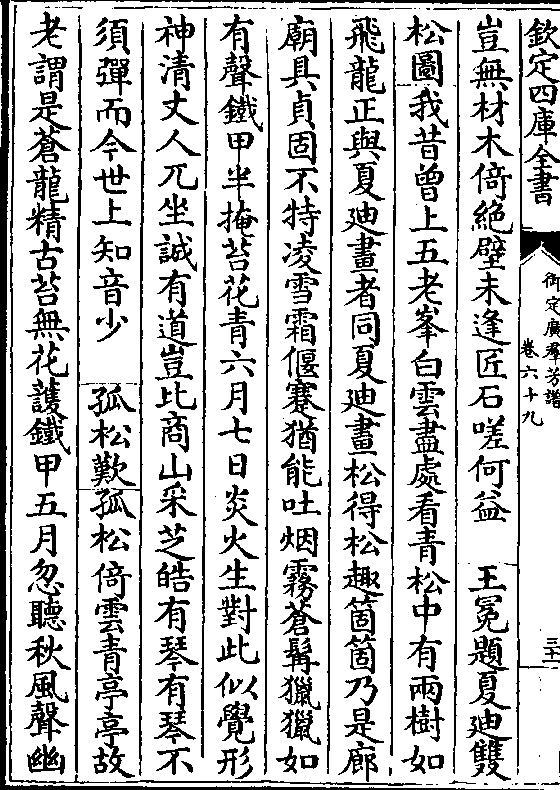 欽定四庫全書
御定廣羣芳譜
卷六十九
三十
豈無材木倚絶壁未逢匠石嗟何益　王冕題夏廸雙
松圖我昔曾上五老峯白雲盡處看青松中有兩樹如
飛龍正與夏廸畫者同夏廸畫松得松趣箇箇乃是廊
廟具貞固不特凌雪霜偃蹇猶能吐烟霧蒼髯獵獵如
有聲鐵甲半掩苔花青六月七日炎火生對此似覺形
神清丈人兀坐誠有道豈比商山采芝皓有琴有琴不
須彈而今世上知音少　孤松歎孤松倚雲青亭亭故
老謂是蒼龍精古苔無花護鐵甲五月忽聽秋風聲幽